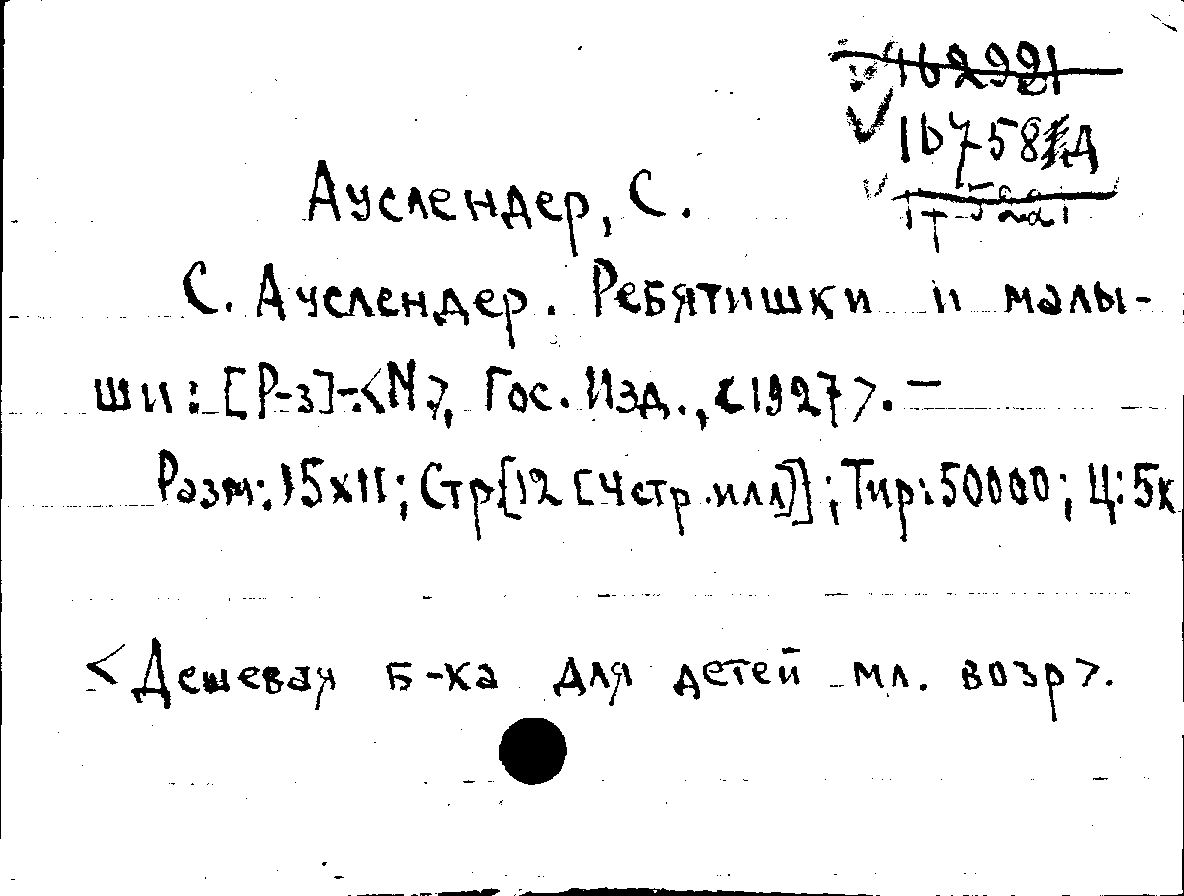 162921
167581д
Ауслендер, С.
С. Ауслендер. Ребятишки и малы-
ши: [Р-з]-<М>, Гос. Изд., <1927>. —
Разм: 15х11; Стр[12 [4стр.илл]]; Тир: 50000; Ц: 5к
<Дешевая Б-ка для детей мл. возр>.